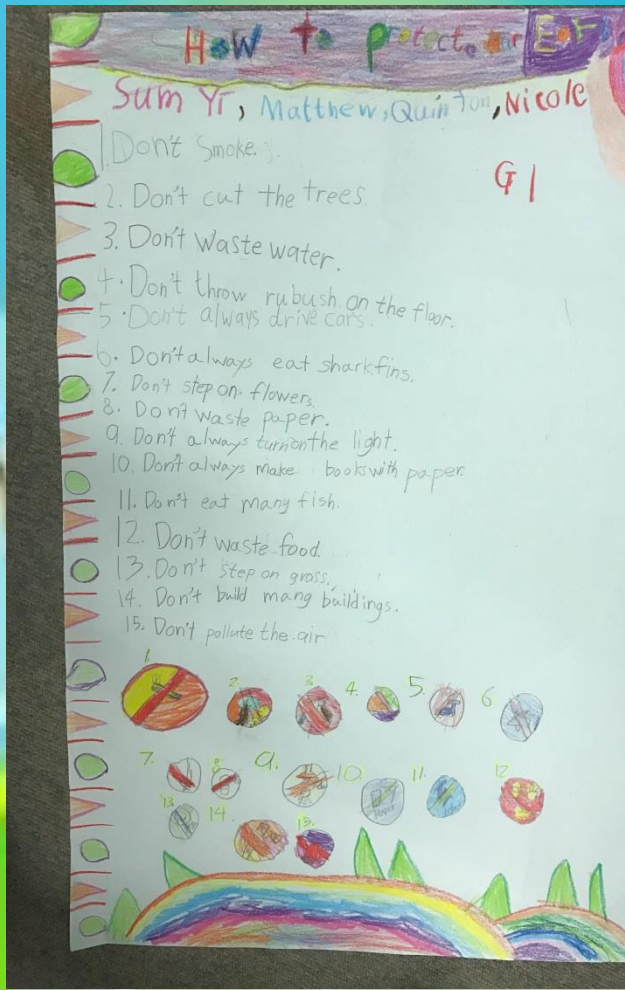 How to protect our Ear
Sum Yi, Matthew, Quinton, Nicole
G1
1 Don't smoke.
2. Don't cut the trees.
3. Don't waste water.
4. Don't throw rubush on the floor.
5. Don't always drive cars.
6. Don't always eat sharkfins.
7. Don't step on flowers.
8. Don't waste paper.
9. Don't always turn on the light.
10. Don't always make books with paper.
11. Don't eat many fish.
12. Don't waste food.
13. Don't step on grass.
14. Don't build mang buildings.
15. Don't pollute the air
1. 2. 3. 4. 5. 6
7. 8. 9. 10. 11. 12
13 14. 15.